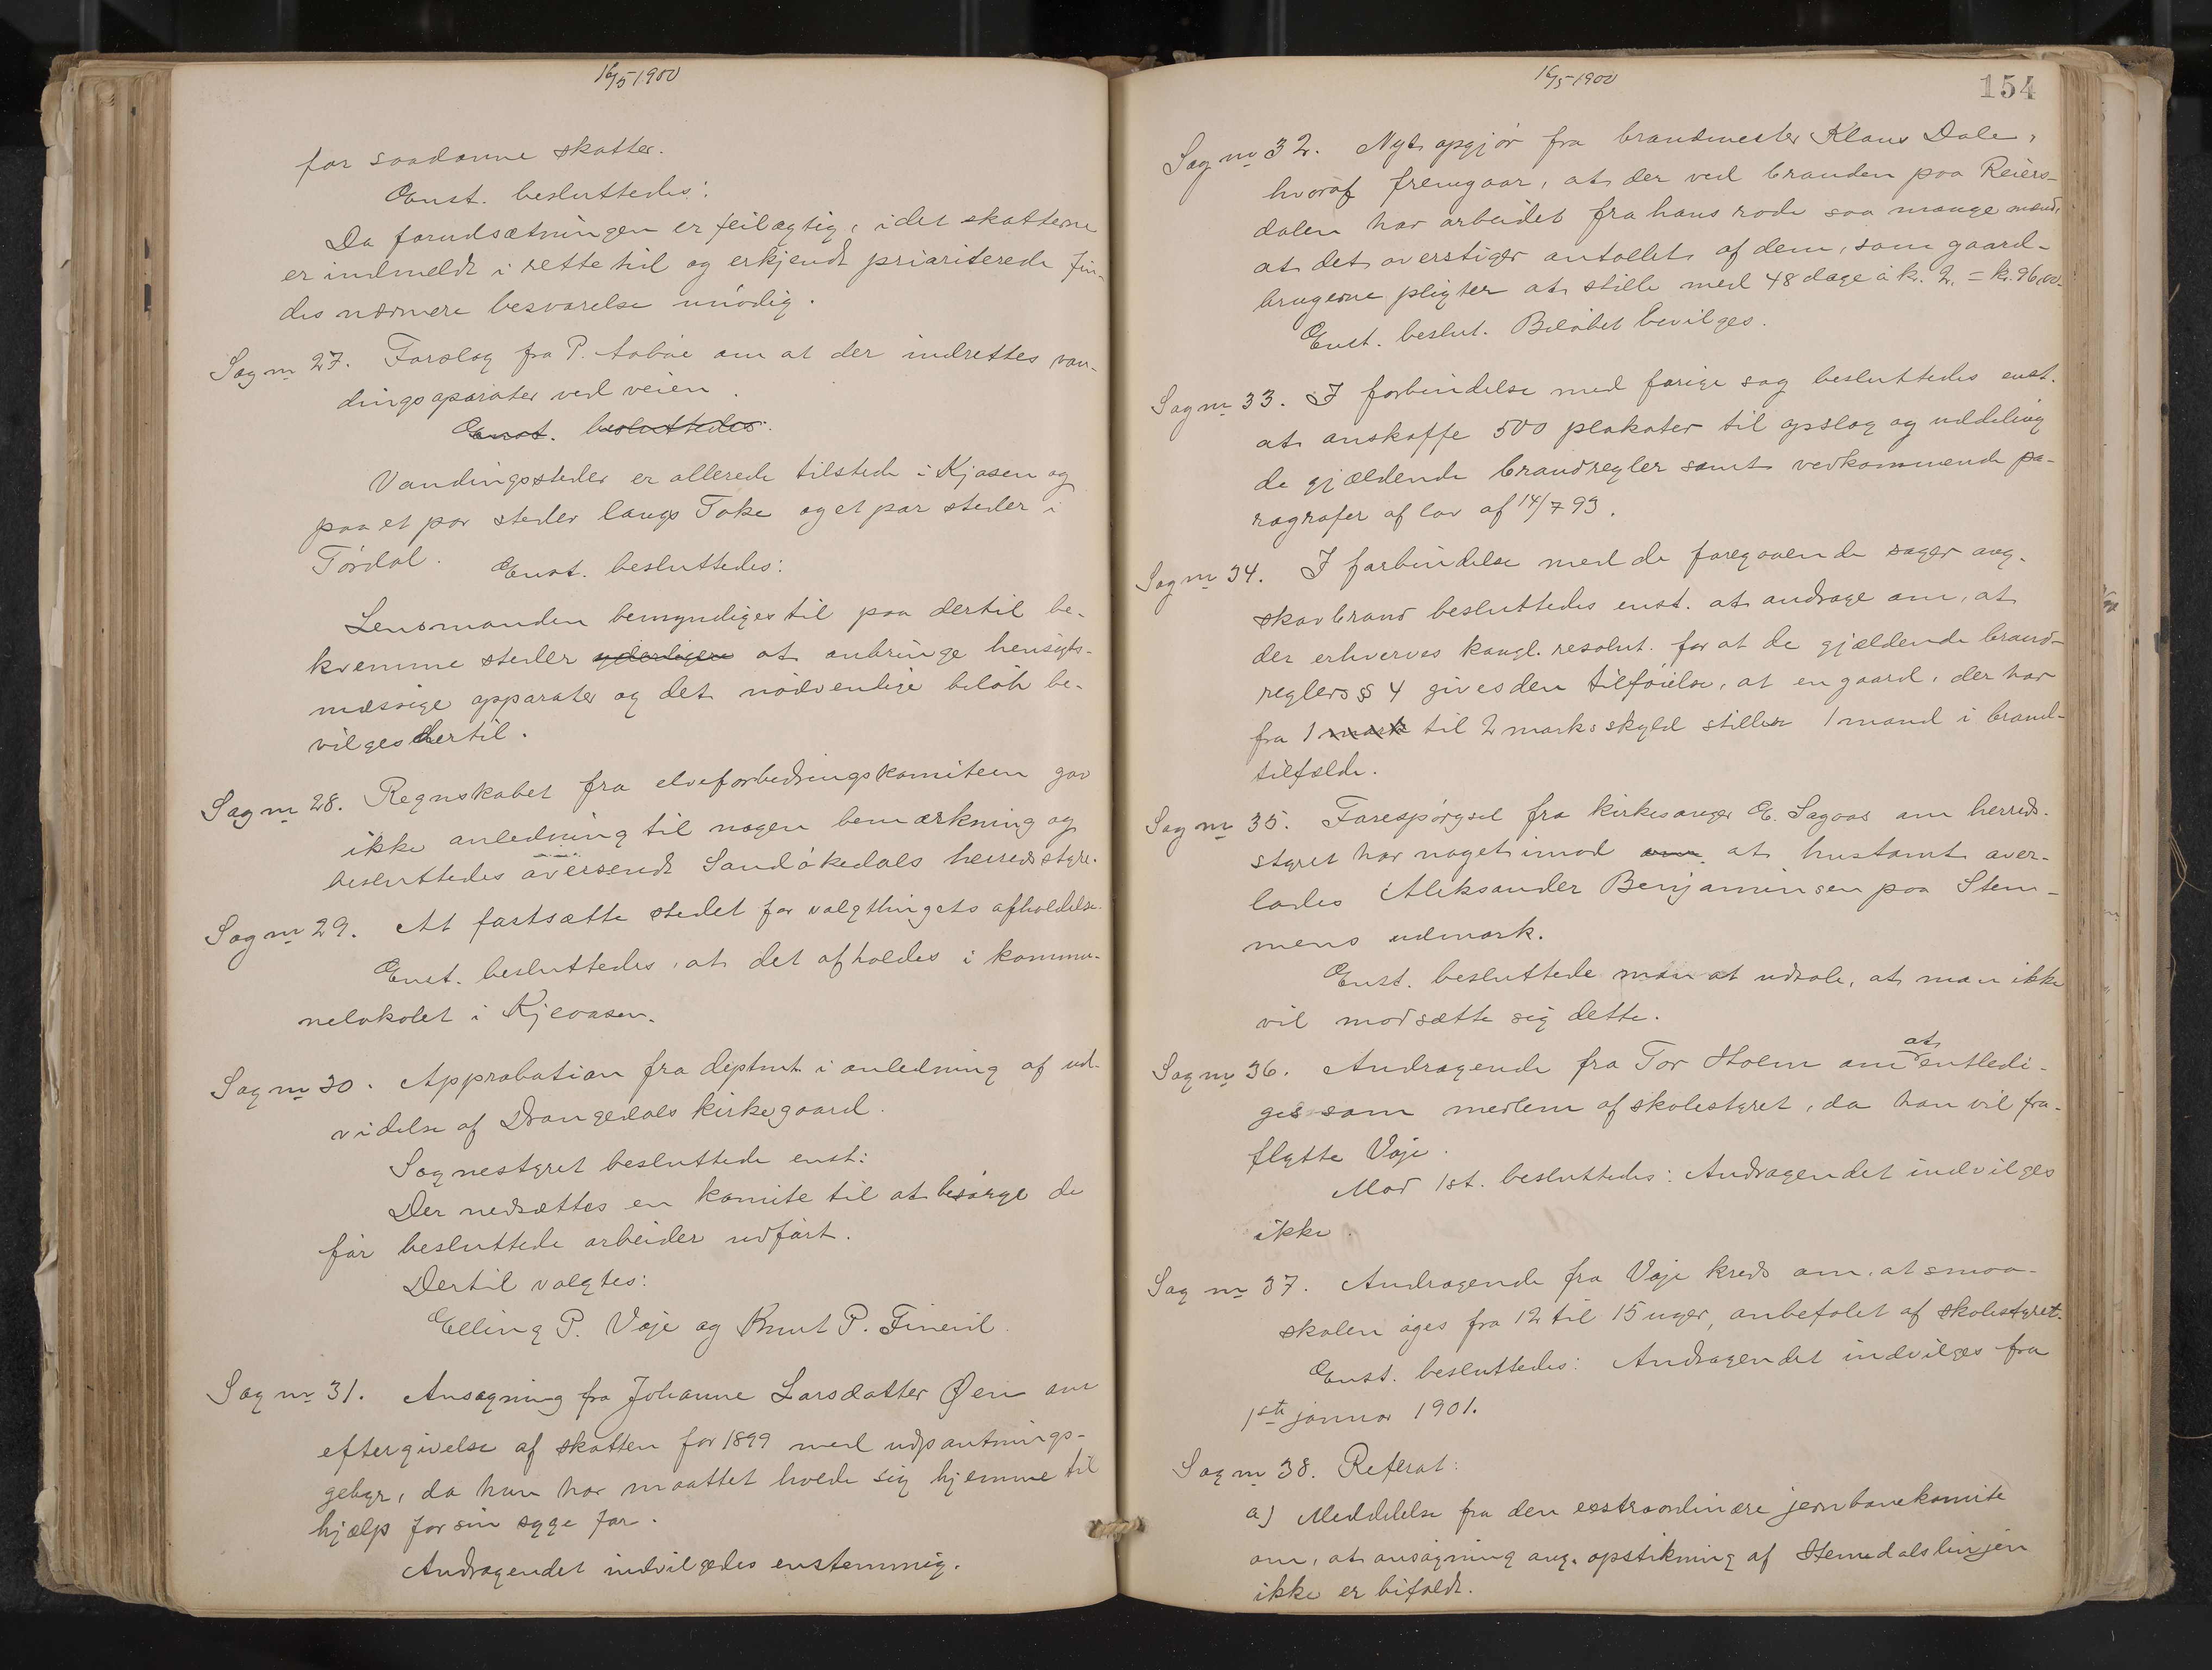 16/5 1900
for saadanne skatter.
Enst. besluttedes:
Da forudsætningen er feilagtig, idet skatterne
er indmeldt i rette tid og erkjendt prioriterede fin-
des nærmere besvarelse unødig.
Sag nr 27. Forslag fra P. Aabøe om at der indrettes van-
dingsaparater ved veien.
Enst. besluttedes:
Vandingssteder er allerede tilstede i Kjosen og
paa et par steder langs Toke og et par steder i
Tørdal. Enst. besluttedes:
Lensmanden bemyndiges til paa dertil be-
kvemme steder yderligere at anbringe hensigts-
mæssige apparater og det nødvenlige beløb be-
vilges dertil.
Sag nr 28. Regnskabet fra elveforbedringskomiteen gav
ikke anledning til nogen bemærkning og
besluttedes oversendt Sandøkedals herredsstyre.
Sag nr 29. At fastsætte stedet for valgthingets afholdelse.
Enst. besluttedes, at det afholdes i kommu-
nelokalet i Kjeosen.
Sag nr 30. Approbation fra deptmt. i anledning af ud-
videlse af Drangedals kirkegaard.
Sognestyret besluttede enst:
Der nedsættes en komite til at besørge de
før besluttede arbeider udført.
Dertil valgtes:
Elling P. Voje og Knut P. Finevil.
Sag nr 31. Ansøgning fra Johanne Larsdatter Øen om
eftergivelse af skatten for 1899 med udpantnings-
gebyr, da hun har maattet holde sig hjemme til
hjælp for sin syge far.
Andragendet indvilgedes enstemmig.
16/5 1900
154
Sag nr 32. Nyt opgjør fra brandmester Klaus Dale,
hvoraf fremgaar, at der ved branden paa Reiers-
dalen har arbeidet fra hans rode saa mange mænd,
at det overstiger antallet af dem, som gaard-
brugerne pligter at stille med 48 dage à kr. 2. = kr. 96.00.
Enst. beslut. Beløbet bevilges.
Sag nr 33. I forbindelse med forige sag besluttedes enst.
at anskaffe 500 plakater til opslag og uddeling
de gjældende brandregler samt vedkommende pa-
ragrafer af lov af 14/7 93.
Sag nr 34. I forbindelse med de foregaaende sager ang.
skovbrand besluttedes enst. at andrage om, at
der erhverves kongl. resolut. for at de gjældende brand-
reglers § 4 gives den tilføielse, at en gaard, der har
fra 1 mark til 2 marks skyld stiller 1 mand i brand-
tilfælde.
Sag nr 35. Forespørgsel fra kirkesanger E. Sagaas om herreds-
styret har noget imod om at hustomt over-
lades Aleksander Benjaminsen paa Stem-
mens udmark.
Enst. besluttede man at udtale, at man ikke
vil modsætte sig dette.
Sag nr 36. Andragende fra Tor Holm om at entledi-
ges som medlem af skolestyret, da han vil fra-
flytte Voje.
Mod 1 st. besluttedes: Andragendet indvilges
ikke.
Sag nr 37. Andragende fra Voje kreds om, at smaa-
skolen øges fra 12 til 15 uger, anbefalet af skolestyret.
Enst. besluttedes: Andragendet indvilges fra
1ste januar 1901.
Sag nr 38. Referat:
a) Meddelelse fra den exstraordinære jernbanekomite
om, at ansøgning ang. opstikning af Hemdalslinjen
ikke er bifaldt.